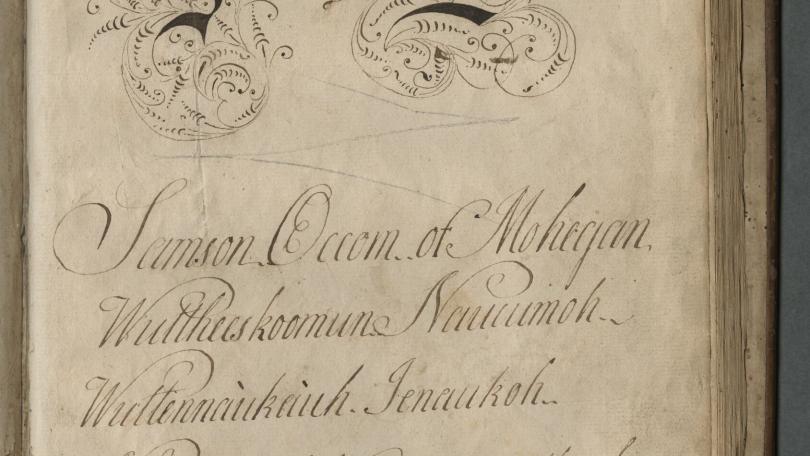 Samson Occom of Mohegan
Wuttheeskoomun Nauuumoh
Wuttennaùkàuh. Jenaukoh